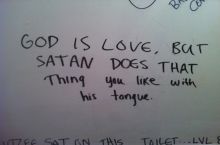 GOD IS LOVE, BUT
SATAN DOES THAT
Thing you like with
his tongue.
SAT ON THIS TOILET...LVL